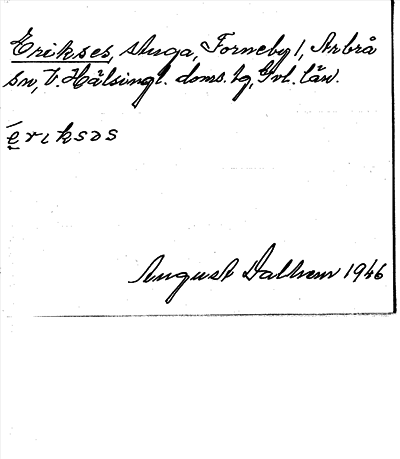 Erikses, stuga, Forneby 1, Arbrå
sn, V. Hälsingl. doms. tg, Gvl. län.
e̠riksəs
August Dalhem 1946